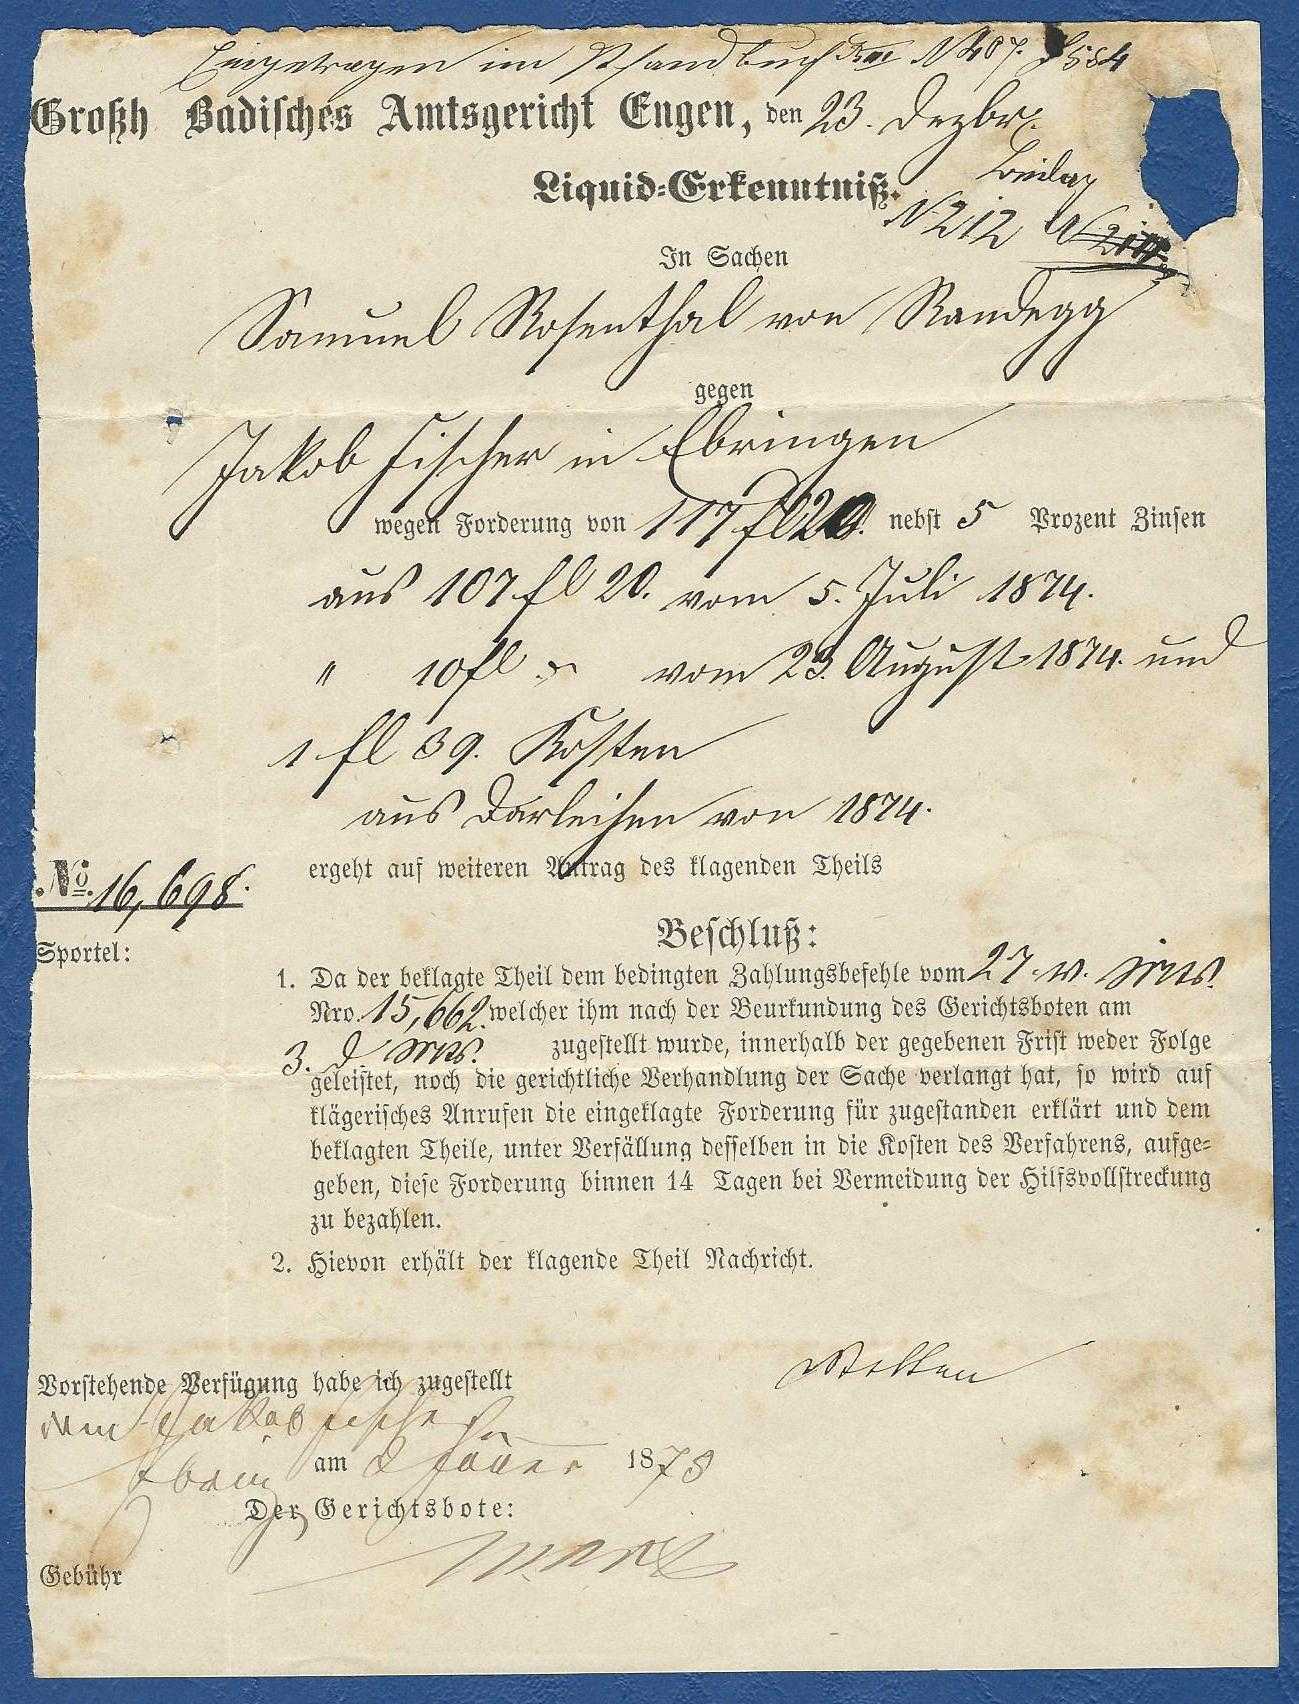 Eingetragen im Pfandbuch Bd. VII N 107. S 554
Großh Badisches Amtsgericht Engen, den 23. Dezbr.
Liquid-Erkenntniß.
Beilag
N 212
In Sachen
Samuel Rosenthal von Randegg
gegen
Jakob Fischer in Ebringen
wegen Forderung von 117 fl 20. nebst 5 Prozent Zinsen
aus 107 fl 20. vom 5. Juli 1874.
" 10 fl – vom 23. August 1874. und
1 fl 39. Kosten
aus Darleihen von 1874.
ergeht auf weiteren Antrag des klagenden Theils
No. 16,698.
Sportel:
Beschluß:
1. Da der beklagte Theil dem bedingten Zahlungsbefehle vom 27. v. Mts.
Nro. 15,662. welcher ihm nach der Beurkundung des Gerichtsboten am
3. d Mts. zugestellt wurde, innerhalb der gegebenen Frist weder Folge
geleistet, noch die gerichtliche Verhandlung der Sache verlangt hat, so wird auf
klägerisches Anrufen die eingeklagte Forderung für zugestanden erklärt und dem
beklagten Theile, unter Verfällung desselben in die Kosten des Verfahrens, aufge-
geben, diese Forderung binnen 14 Tagen bei Vermeidung der Hilfsvollstreckung
zu bezahlen.
2. Hievon erhält der klagende Theil Nachricht.
Vorstehende Verfügung habe ich zugestellt
dem Jakob Fischer
Ebringen am 2 Jäner 1875
Der Gerichtsbote:
Gebühr